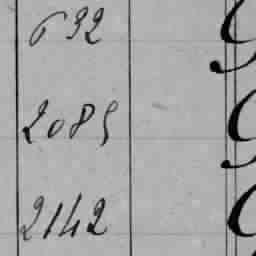 632
2085
2142